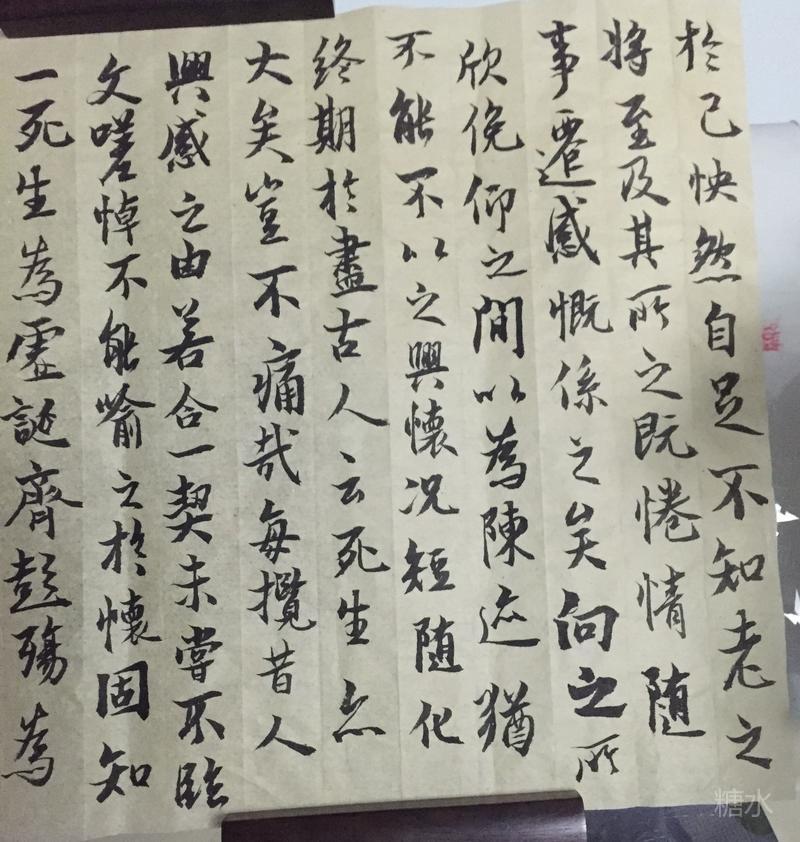 於己怏然自足不知老之
將至及其所之既惓情随
事遷感慨係之矣向之所
欣俛仰之間以為陳迹猶
不能不以之興懷况短随化
終期於盡古人云死生亦
大矣豈不痛哉每攬昔人
興感之由若合一契未甞不臨
文嗟悼不能喻之於懷固知
一死生為虚誕齊彭殤為
糖水